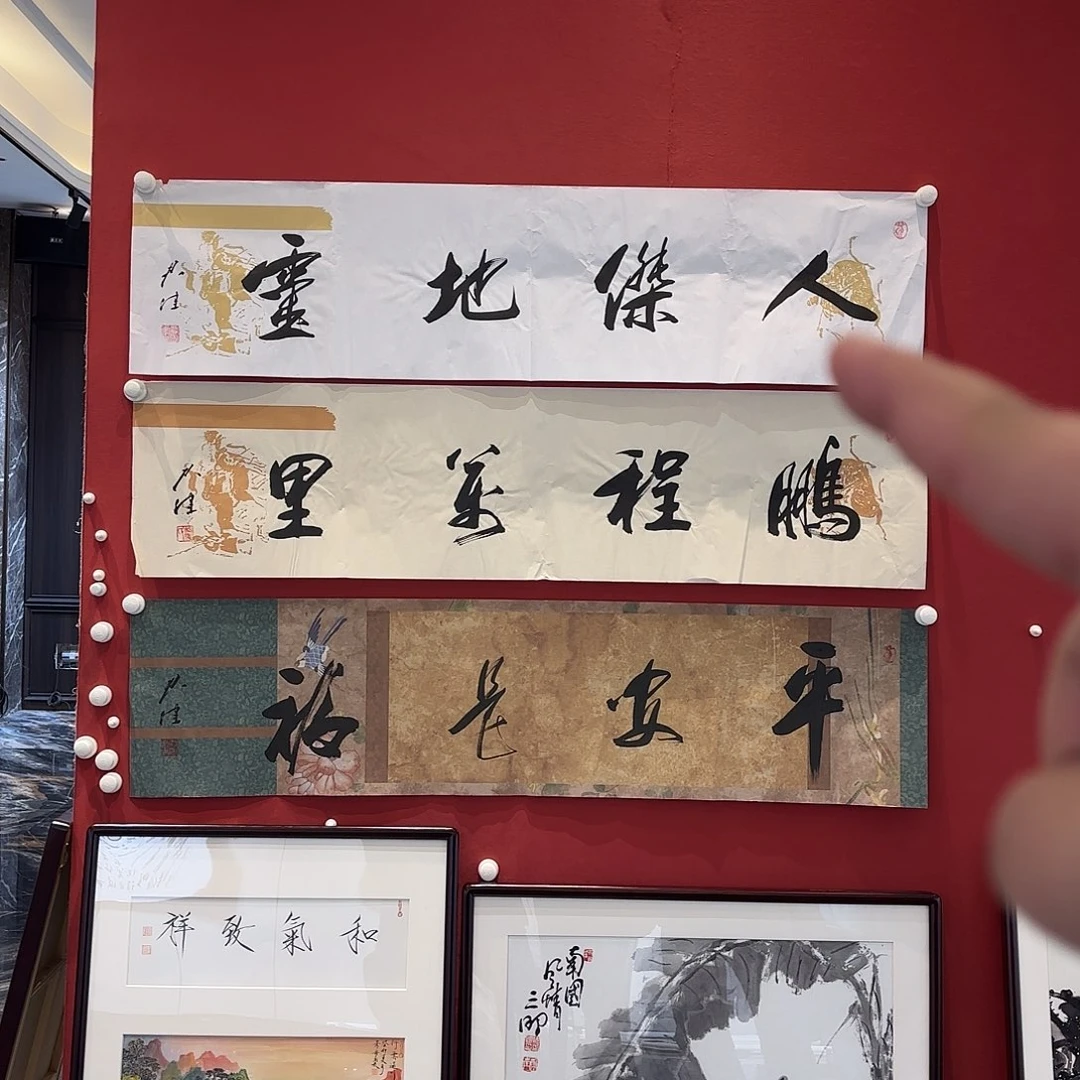 人傑地靈
鵬程萬里
平安是福
和氣致祥
南國
風情